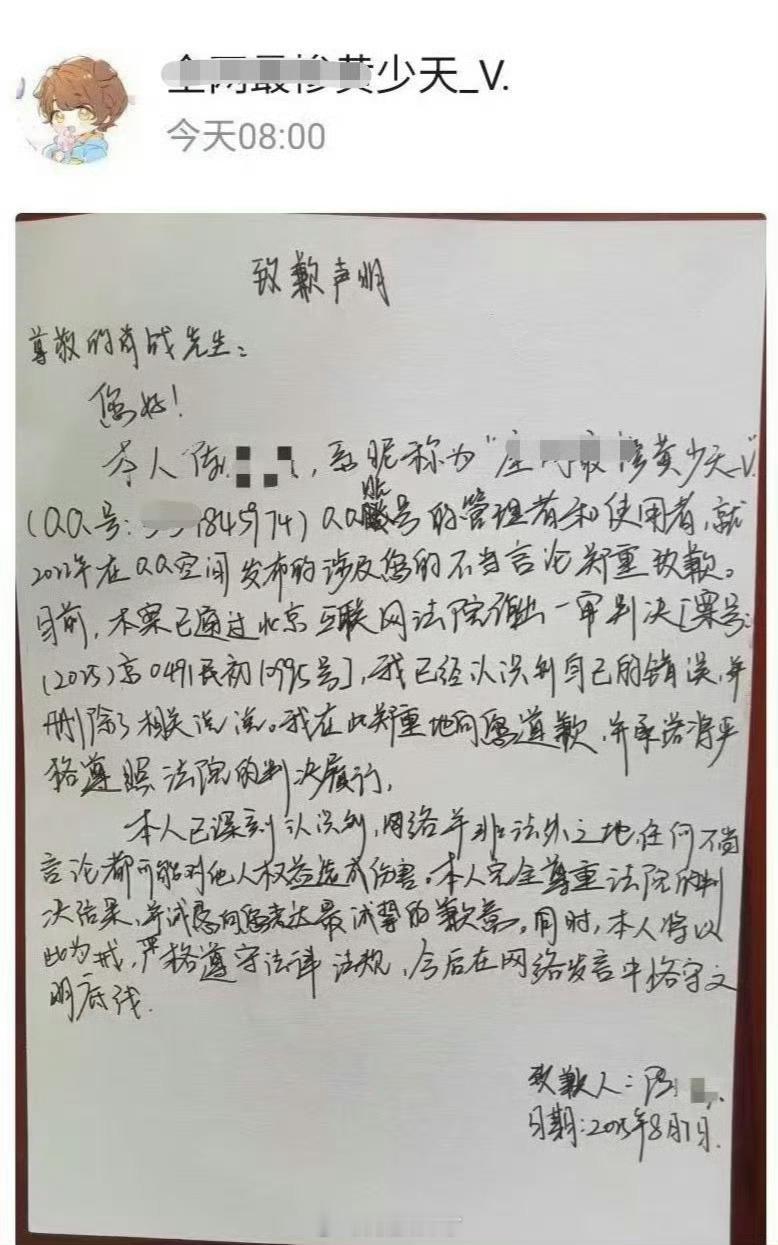 少天_V.
今天08:00
致歉声明
尊敬的肖战先生：
您好！
本人陈，系昵称为“黄少天_V.
(QQ号:845974)QQ账号的管理者和使用者，就
2022年在QQ空间发布的涉及您的不当言论郑重致歉。
目前，本案已通过北京互联网法院作出一审判决[案号:
(2025)京0491民初10995号]，我已经认识到自己的错误，并
删除了相关说说。我在此郑重地向您道歉，并承诺将严
格遵照法院的判决履行，
本人已深刻认识到，网络并非法外之地，任何不当
言论都可能对他人权益造成伤害。本人完全尊重法院的判
决结果，并诚恳向您表达最诚挚的歉意。同时，本人将以
此为戒，严格遵守法律法规，今后在网络发言中恪守文
明底线.
致歉人：陈
日期:2025年8月7日.